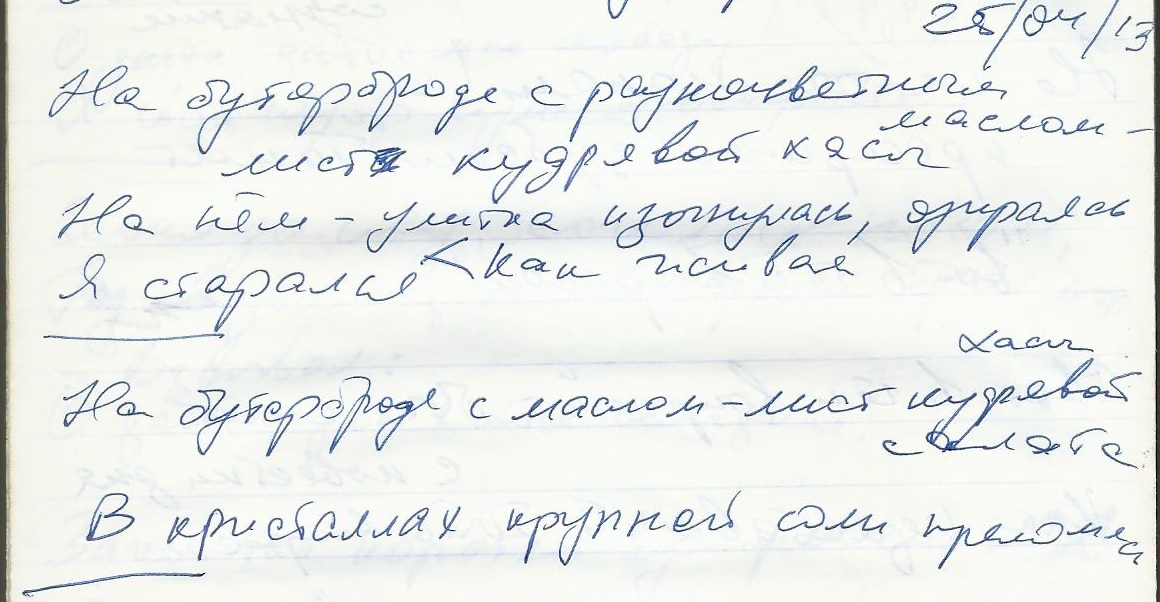 25/04/13
На бутерброде с разноцветным
маслом -
лист кудрявой хасы
На нём - улитка изогнулась, озираясь
Я старался < как живая
хасы
На бутерброде с маслом - лист кудрявой
салата
В кристаллах крупной соли